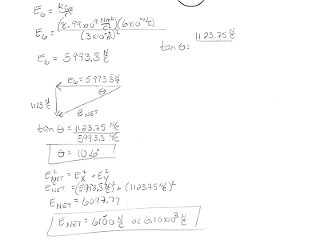 E₆ = Kq₆/r²
E₆ = (8.99x10⁹ Nm²/C²)(6x10⁻⁹C)/(3x10⁻²)²
1123.75 N/C
tan θ =
E₆ = 5993.3 N/C
E₆ = 5993.3 N/C
θ
1123 N/C
E NET
tan θ = 1123.75 N/C / 5993.3 N/C
θ = 10.6°
E²NET = E²x + E²y
E²NET = (5993.3 N/C)² + (1123.75 N/C)²
E NET = 6097.77
E NET = 6100 N/C or 6.10x10³ N/C